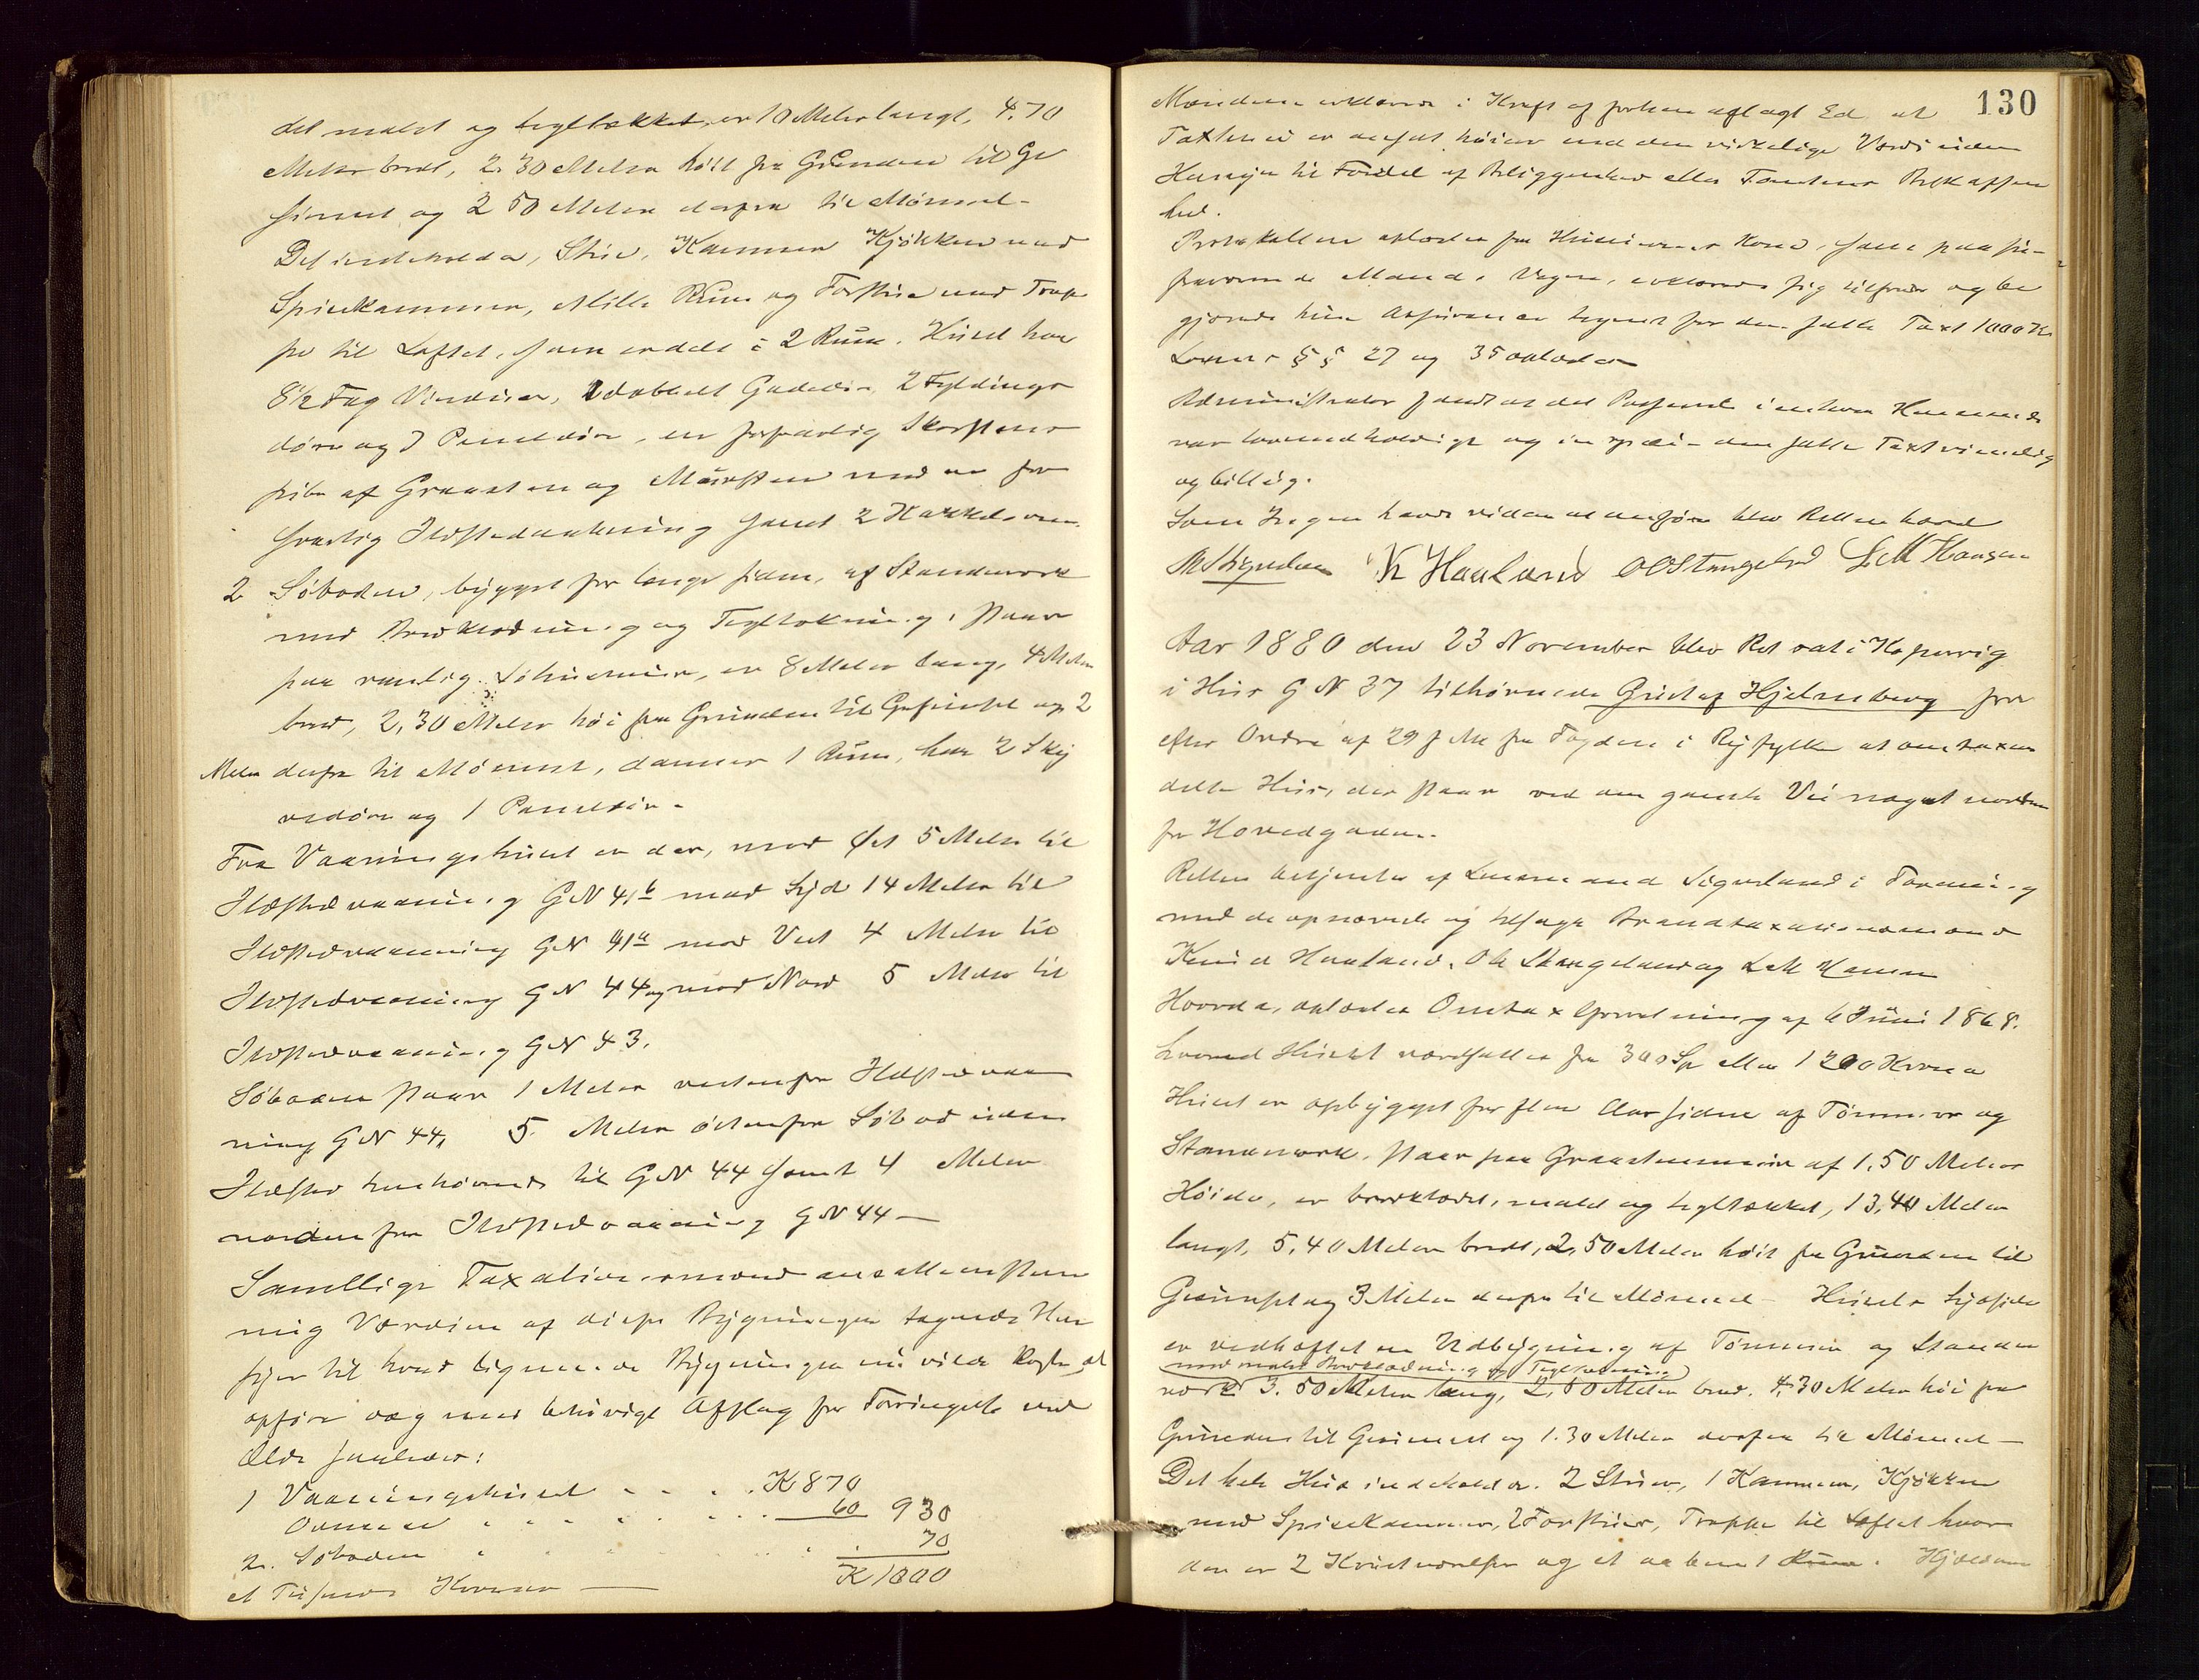 det malet og tegltækket, er 10 Meter langt, 4.70
Meter bredt, 2.30 Meter høit fra Grunden til Ge
simset og 2 50 Meter derfra til Mønnet -
Det indeholder, Stue, Kammer Kjøkken med
Spisekammer, Rum og Forstue med Trap
pe til Loftet, som er delt i 2 Rum. Huset har
8½ Fag Vinduer, dobbelt Gadedør, 2 Fyldings
døre og 7 Paneldør, en forsvarlig Skorstens
pibe af Graasten og Mursten med en for
svarlig samt 2
2 Søboden, bygget for længe siden, af Standværk
med Bordklædning og Tegltækning, staar
paa vanlig, er 8 Meter lang, 4 Meter
bred, 2,30 Meter høi fra Grunden til Gesimset og 2
Meter derfra til Mønnet, danner 1 Rum, har 2 Sky
vedøre og 1 Paneldør -
Fra Vaaningshuset er der, mod Øst 5 Meter til
Ildstedvaaning GN 41b mod Syd 14 Meter til
Ildstedvaaning GN 41a mod Vest 4 Meter til
Ildstedvaaning GN 44 og mod Nord 5 Meter til
Ildstedvaaning GN 43.
Søboden staar 1 Meter vestenfor Ildstedvaa
ning GN 44, 5 Meter østenfor Søbod uden
Ildsted henhørende til GN 44 samt 4 Meter
nordenfor Ildstedvaaning GN 44 -
Samtlige Taxationsmænd ansatte enstem
mig Værdien af disse Bygninger tagende Hen
syn til hvad lignende Bygninger nu vilde koste at
opføre og med behørigt Afslag for Forringelse ved
Ælde saaledes:
1 Vaaningshuset . . . . K 870
Ovnene . . . . . . . 60 930
2. Søboden . . . . . . 70
et Tusinde Kroner — K 1000
130
Mændene erklærede i Kraft af forhen aflagt Ed at
Taxterne er ansat høiere end den virkelige Værdi uden
Hensyn til Fordel af Beliggenhed eller Tomtens Beskaffen
hed.
Protokollen oplæstes for Huseierens Kone, som paa sin
fraværende Mands Vegne, erklærede sig tilfreds og be
gjærede hun Assurancen tegnet for den satte Taxt 1000 Kr
Lovens §§ 27 og 35 oplæstes
Administrator fandt at det Passerede i enhver Henseende
var lovmedholdigt og den satte Taxt rimelig
og billig.
Som Ingen havde videre at anføre blev Retten hævet
Sigveland K Haaland OO Stangeland L M Hansen
Aar 1880 den 23 November blev Ret sat i Kopervig
i Hus GN 37 tilhørende Gustaf Hjelmberg for
efter Ordre af 29 f Mt fra Fogden i Ryfylke at omtaxere
dette Hus, der staar ved den gamle Vei noget norden
for Hovedgaden.
Retten betjentes af Lensmand Sigveland i Forening
med de opnævnte og tilsagte Brandtaxationsmænd
Knud Haaland, Ole Stangeland og L M Hansen
Hvorda, oplæstes Omtaxtforretning af 6 Juni 1868.
hvorved Huset værdsattes for 300 Sp eller 1200 Kroner
Huset er opbygget for flere Aar siden af Tømmer og
Standværk, staar paa Graastensmur af 1,50 Meter
Høide, er bordklædt, malet og tegltækket, 13,40 Meter
langt, 5,40 Meter bredt, 2,50 Meter høit fra Grunden til
Gesimset og 3 Meter derfra til Mønnet - Husets Sydside
er vedhæftet en Udbygning af Tømmer og Standen
med malet Bordklædning og Tegltækning
værk 3.50 Meter lang, 2,60 Meter bred, 4,30 Meter høi fra
Grunden til Gesimset og 1.30 Meter derfra til Mønnet -
Det hele Hus indeholder 2 Stuer, 1 Kammer, Kjøkken
med Spisekammer, 2 Forstuer, Trappe til Loftet hvor
der er 2 Kvistværelser og et aabent Rum. Kjælderen